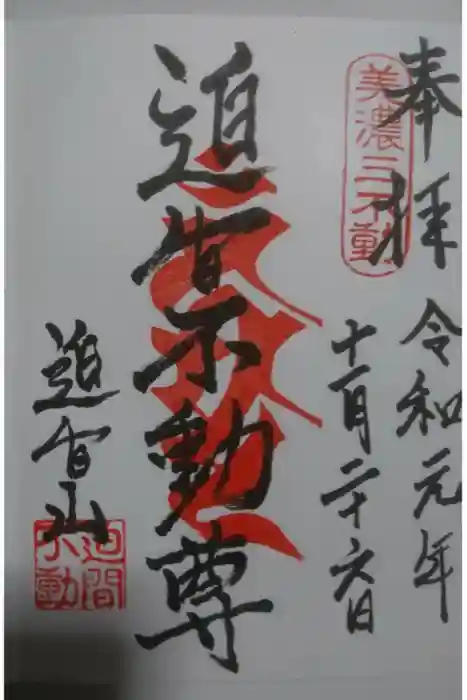 奉拝
美濃三不動
令和元年
十一月二十六日
迫間不動尊
迫間山
迫間
不動